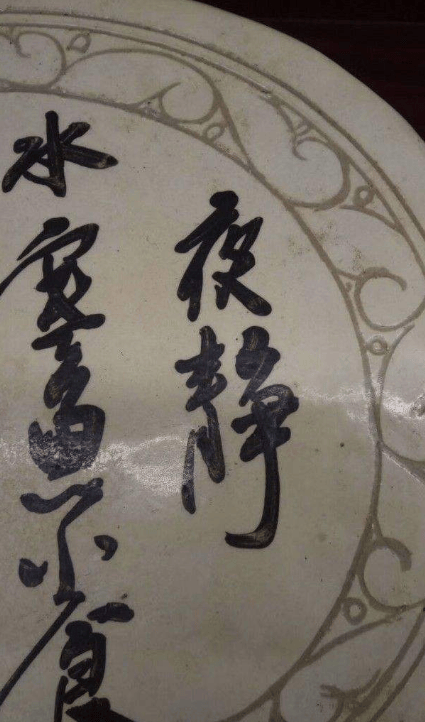 夜静
水寒魚不食